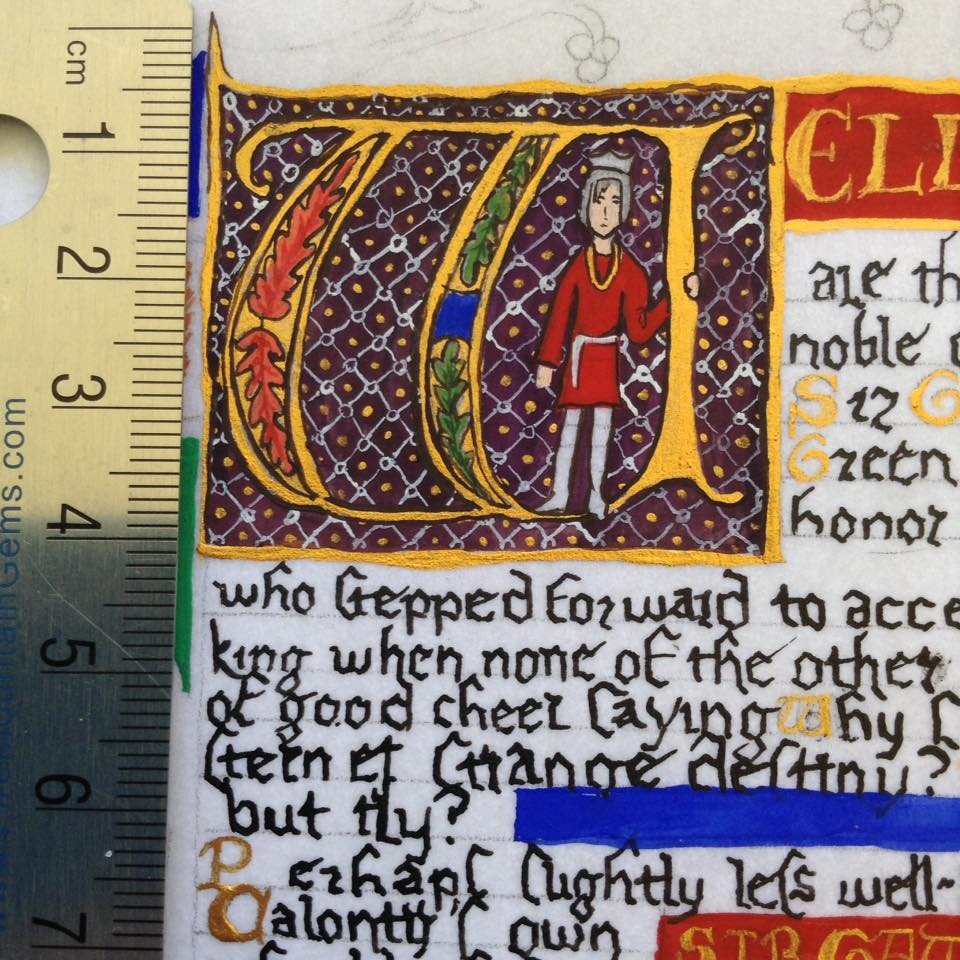 cm
1
2
3
4
5
6
7
MountainGems.com
WELL
are th
noble
Sir G
Green
honor
who stepped forward to acce
king when none of the other
of good cheer saying Why
stern et strange destiny?
but try?
Perhaps slightly less well-
own
SIR GA